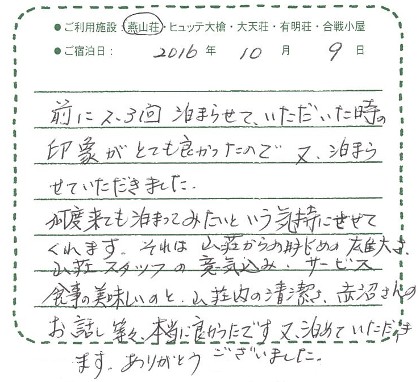 ●ご利用施設：燕山荘・ヒュッテ大槍・大天荘・有明荘・合戦小屋
●ご宿泊日： 2016 年 10 月 9 日
前に2、3回 泊まらせて、いただいた時の
印象がとても良かったので 又、泊まら
せていただきました。
何度来ても泊まってみたいという気持にさせて
くれます。それは山荘からの眺めの雄大さ、
山荘スタッフの意気込み、サービス
食事の美味しいのと、山荘内の清潔さ、赤沼さんの
お話し等々、本当に良かったです又泊めていただき
ます。ありがとうございました。